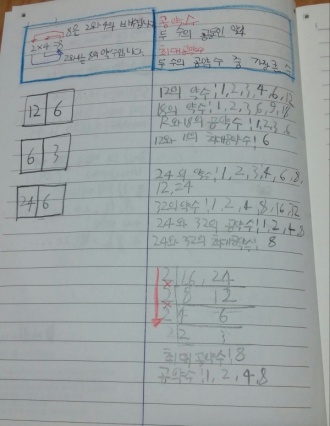 8은 2와 4의 배수입니다.
2×4=8
2와 4는 8의 약수입니다.
공약수
두 수의 공통인 약수
최대공약수
두 수의 공약수 중 가장 큰 수
12 6
6 3
24 6
12의 약수:1,2,3,4,6,12
18의 약수:1,2,3,6,9,18
12와 18의 공약수:1,2,3,6
12와 18의 최대공약수:6
24의 약수:1,2,3,4,6,8,
12,24
32의 약수:1,2,4,8,16,32
24와 32의 공약수:1,2,4,8
24와 32의 최대공약수:8
2 16, 24
2 8 12
2 4 6
2 3
최대 공약수:8
공약수:1,2,4,8